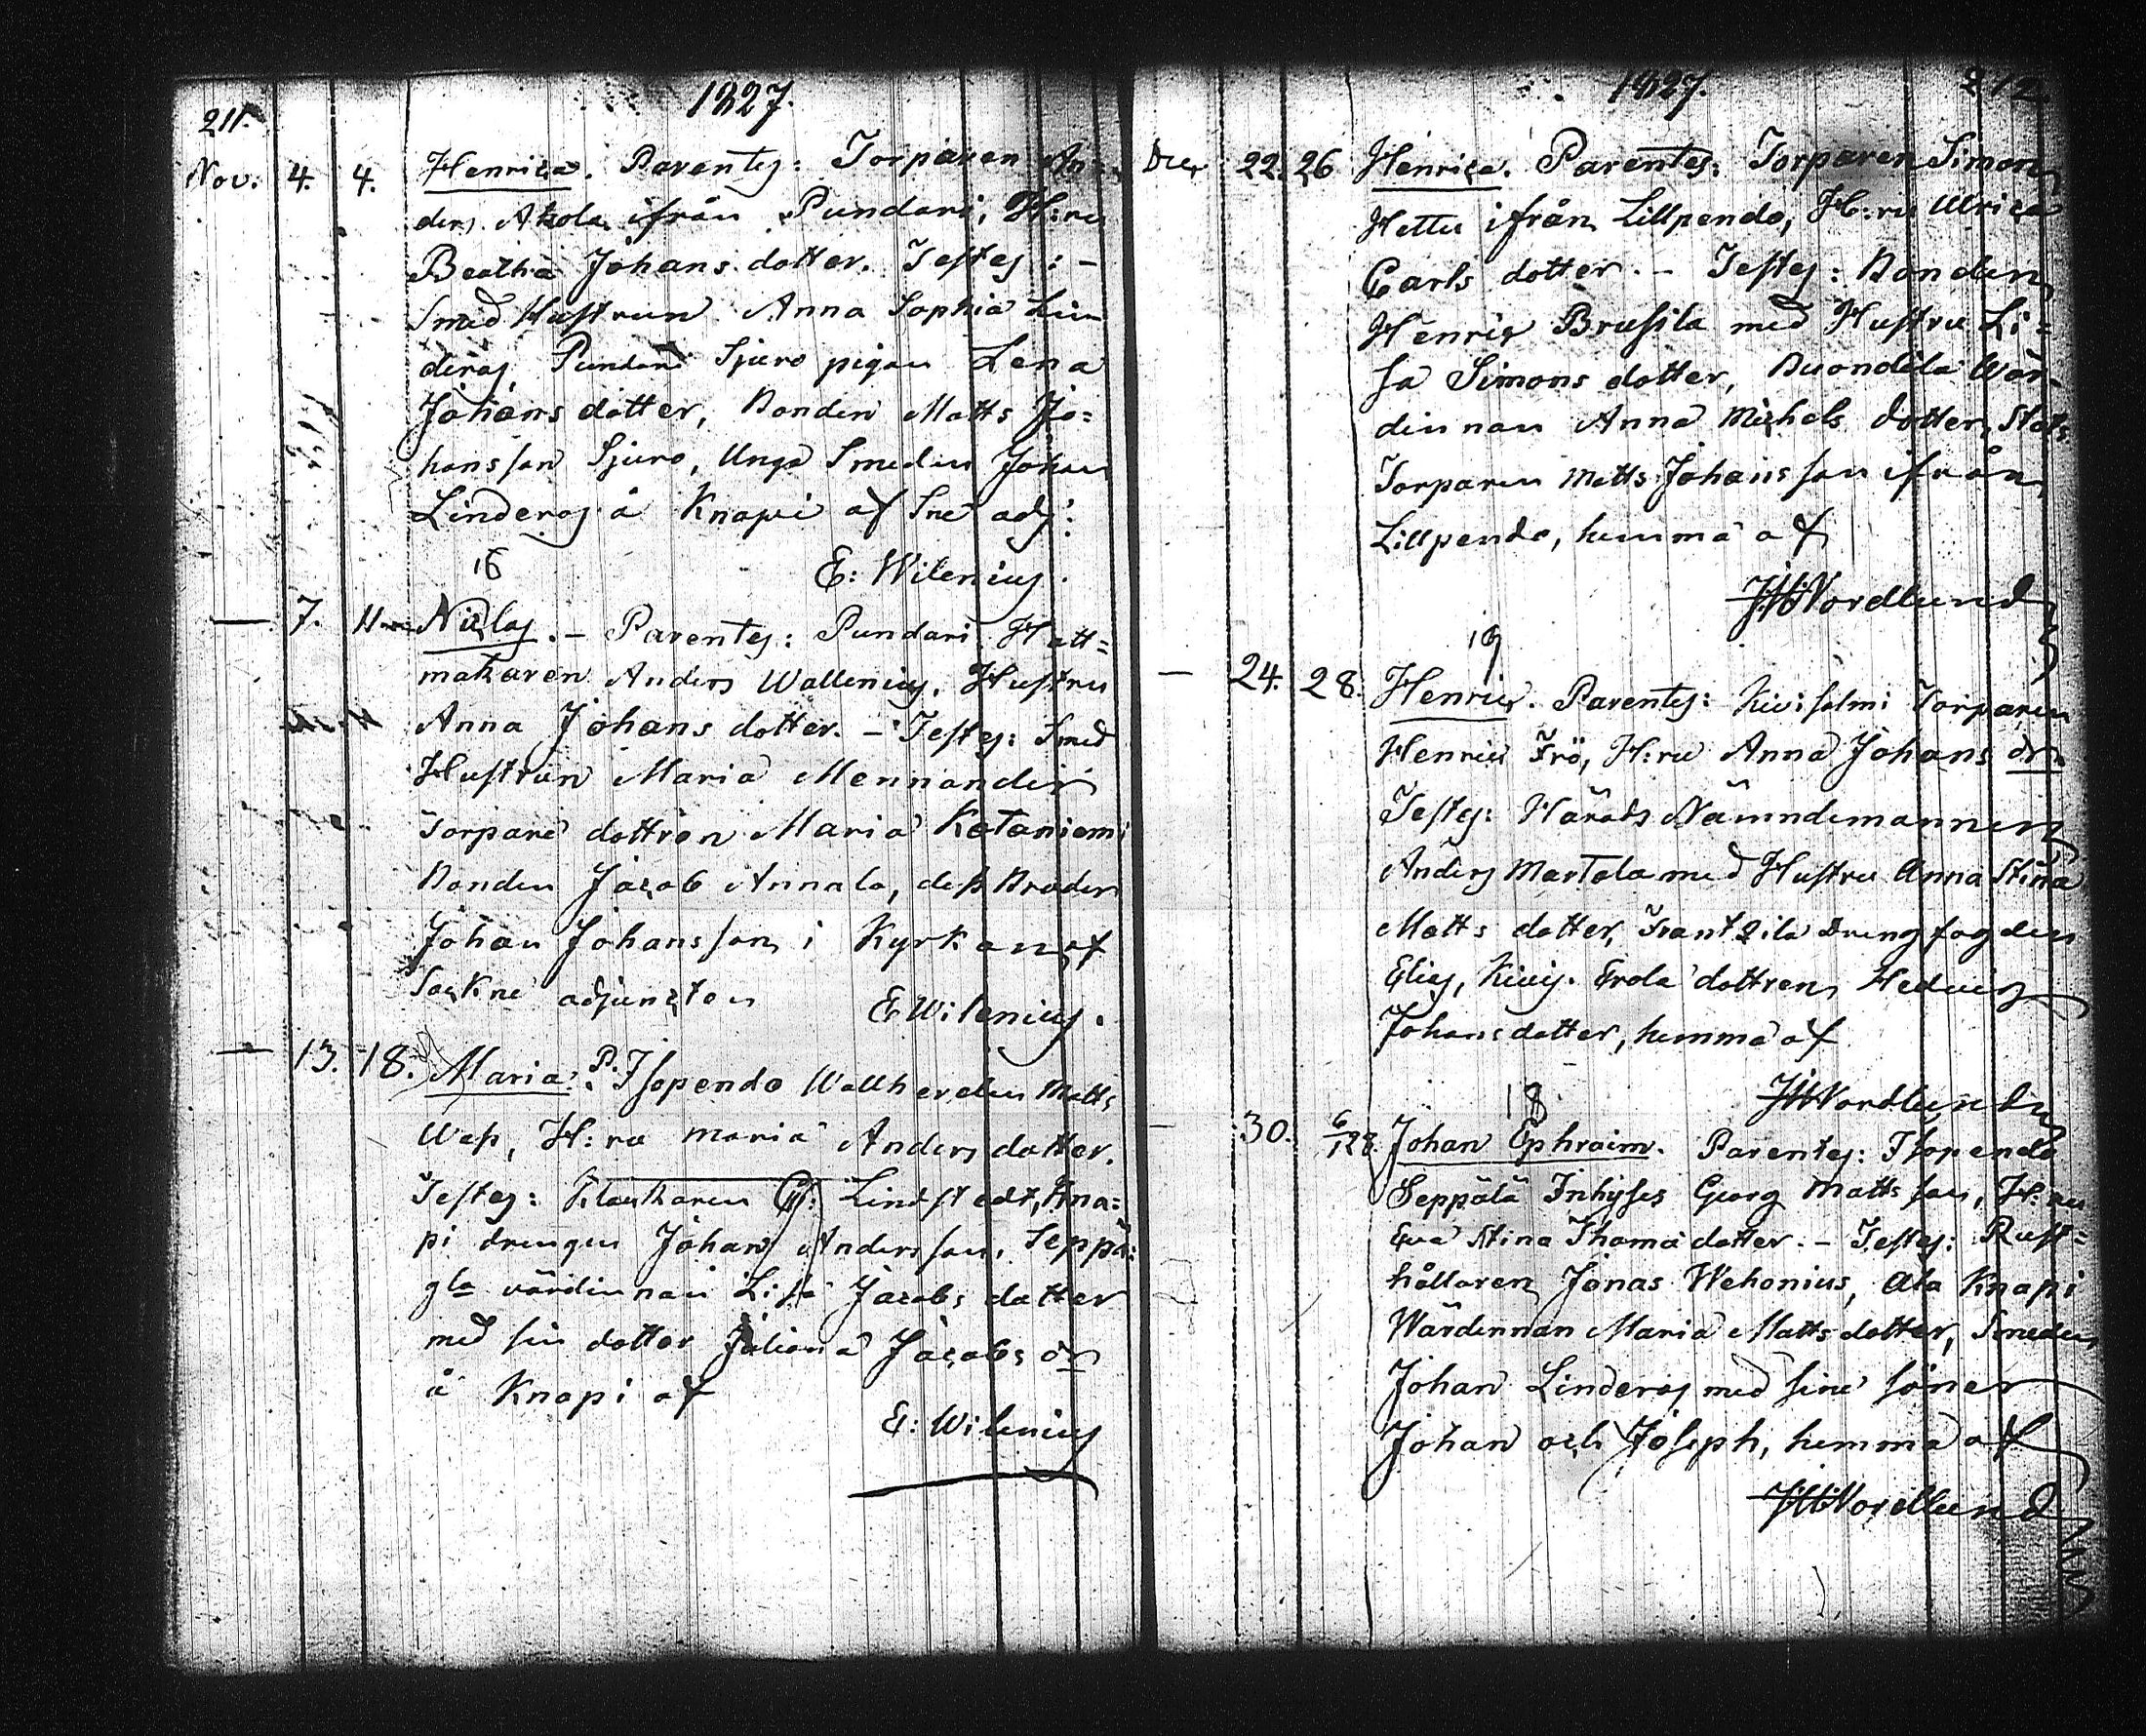 211.
1827.
Nov. 4. 4. Henrica. Parentes: Torparen An-
ders Akola ifrån Pundari, H:ru
Beatha Johans dotter. Testes: -
Smed Hustrun Anna Sophia Lin
deros, Pundari Sjuro pigan Lena
Johans dotter, Bonden Matts Jo=
hansson Sjuro, Unga Smeden Johan
Linderos å Knapi af Sne adj:
E: Wilenius.
16
— 7. 11. Niclas. - Parentes: Pundari Hatt=
makaren Anders Wallenius, Hustru
Anna Johans dotter. - Testes: Smed
Hustrun Maria Mennander
Torpare dottren Maria Ketaniemi
Bonden Jacob Annala, dess Broder
Johan Johansson i Kyrkan af
Sockne adjuncten
E Wilenius.
— 13. 18. Maria. P. Isopendo Wallherden Matts
Wass, H:ru Maria Anders dotter.
Testes: Klockaren Lindstedt, Kna=
pi drengen Johan Andersson, Seppä=
gla värdinnan Lisa Jacobs dotter
med sin dotter Juliana Jacobs dr
å Knapi af
E: Wilenius
1827.
212.
Decr 22. 26 Henrica. Parentes: Torparen Simon
Hettu ifrån Lillpendo, H:ru Ulrica
Carls dotter. - Testes: Bonden
Henric Brusila med Hustru Li=
sa Simons dotter, Wär-
dinnan Anna Michels dotter,
Torparen Matts Johansson ifrån
Lillpendo, hemma af
JHNordlund
19
— 24. 28. Henric. Parentes: Kivisalmi Torparen
Henric Frö, H:ru Anna Johans dr.
Testes: Härads Nämndemannen
Anders Martola med Hustru Anna Stina
Matts dotter, Frantzila Drengfogden
Elias, Kivis. Erola dottren Hedvig
Johansdotter, hemma af
JHNordlund
18
— 30. 6/1 28. Johan Ephraim. Parentes: Isopendo
Seppälä Inhyses Georg Mattsson, H:ru
Eva Stina Thomæ dotter. - Testes: Rust=
hållaren Jonas Wehonius, Ala Knapi
Wärdinnan Maria Matts dotter, Smeden
Johan Linderos med sine söner
Johan och Joseph, hemma af
JHNordlund